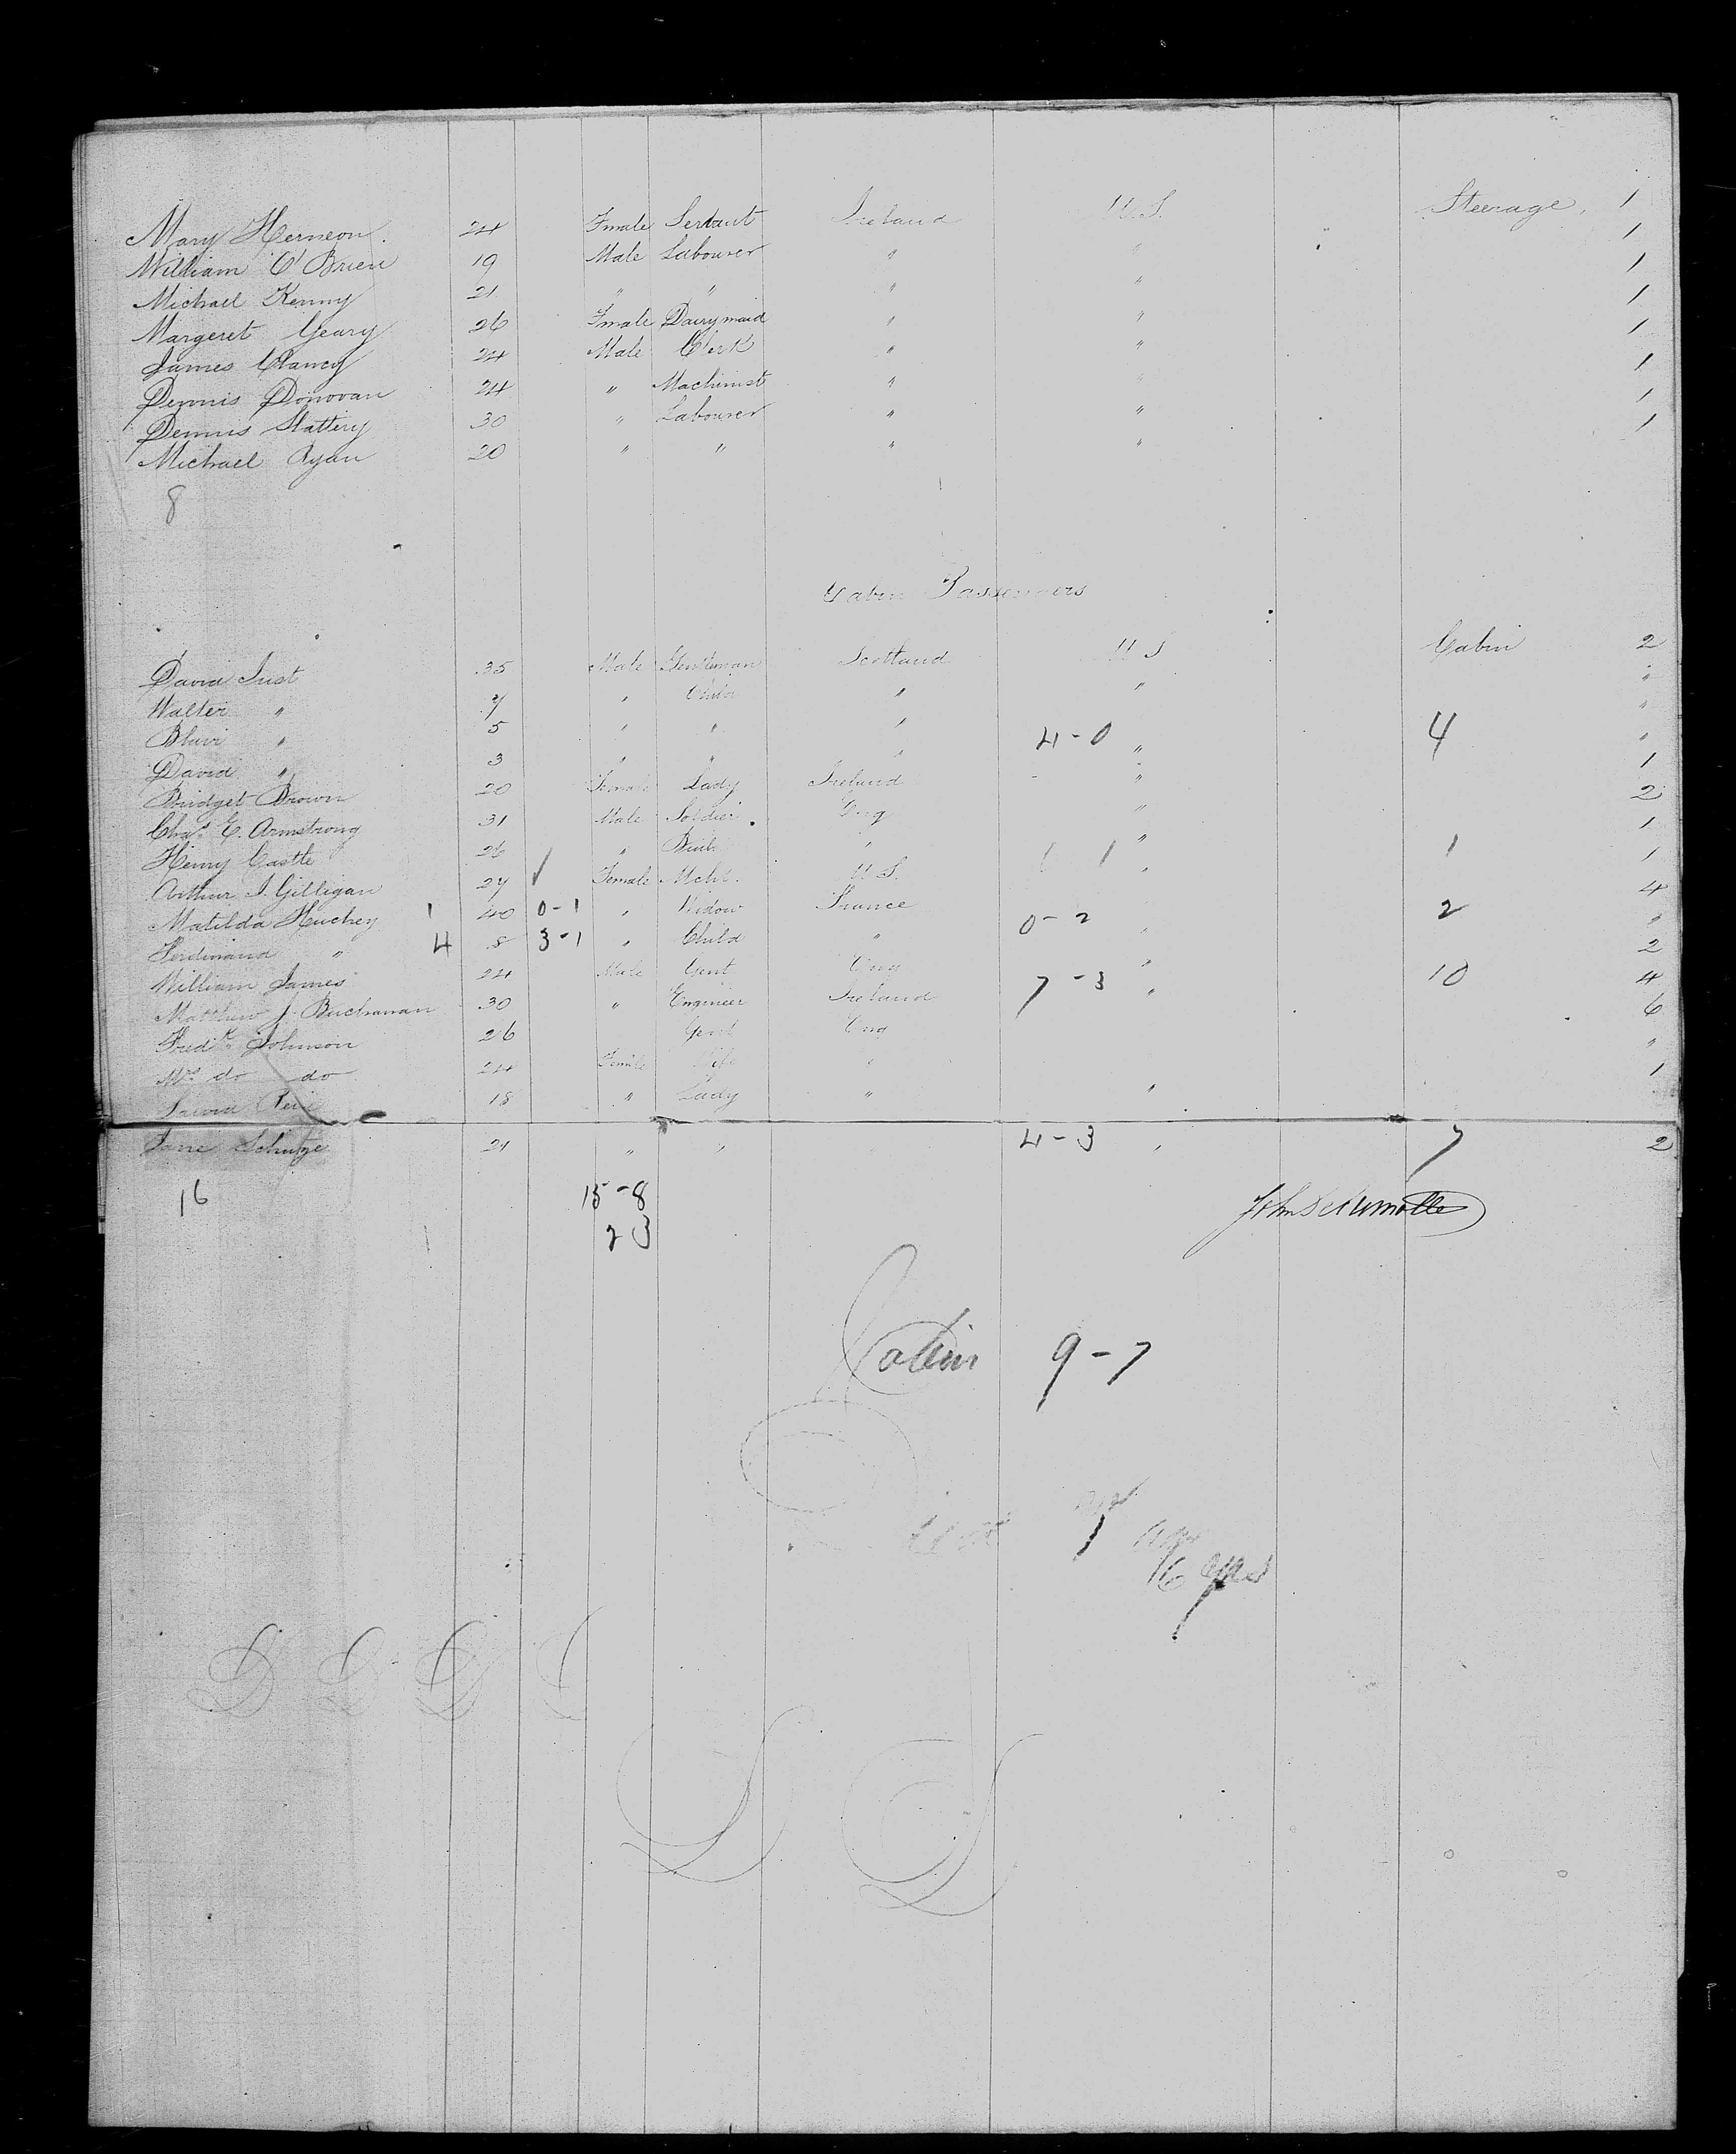 Mary Herneon. 24 Fmale Servant Ireland U.S. Steerage. 1
William O'Brien 19 Male Labourer " " 1
Michael Kenny 21 " " " " 1
Margeret Geary 26 Fmale Dairymaid " " 1
James Clancy 24 Male Clerk " " 1
Dennis Donovan 24 " Machinist " " 1
Dennis Slattery 30 " Labourer " " 1
Michael Ryan 20 " " " " 1
8
Cabin Passengers
David Just 35 Male Gentleman Scotland U S Cabin 2
Walter " 7 " Child " " "
Blair " 5 " " " 4-0 4 "
David " 3 " " " " "
Bridget Brown 20 Female Lady Ireland " 1
Chas. E. Armstrong 31 Male Soldier Eng " 2
Henry Castle 26 " " " 1
Arthur I. Gilligan 27 Female Mcht. U S. 1 1 " 1 1
Matilda Huchey 1 40 0-1 " Widow France 0-2 2 4
Ferdinand " 4 8 3-1 " Child " " "
William James 24 Male Gent Eng " 2
Matthew J. Buchanan 30 " Engineer Ireland 7-3 " 10 4
Fredk. Johnson 26 Gent Eng 6
Mrs. do do 24 Female Wife " "
18 " Lady " " 1
Jane Schutze 21 " " 4-3 " 7 2
16 15-8
23
Cabin 9-7